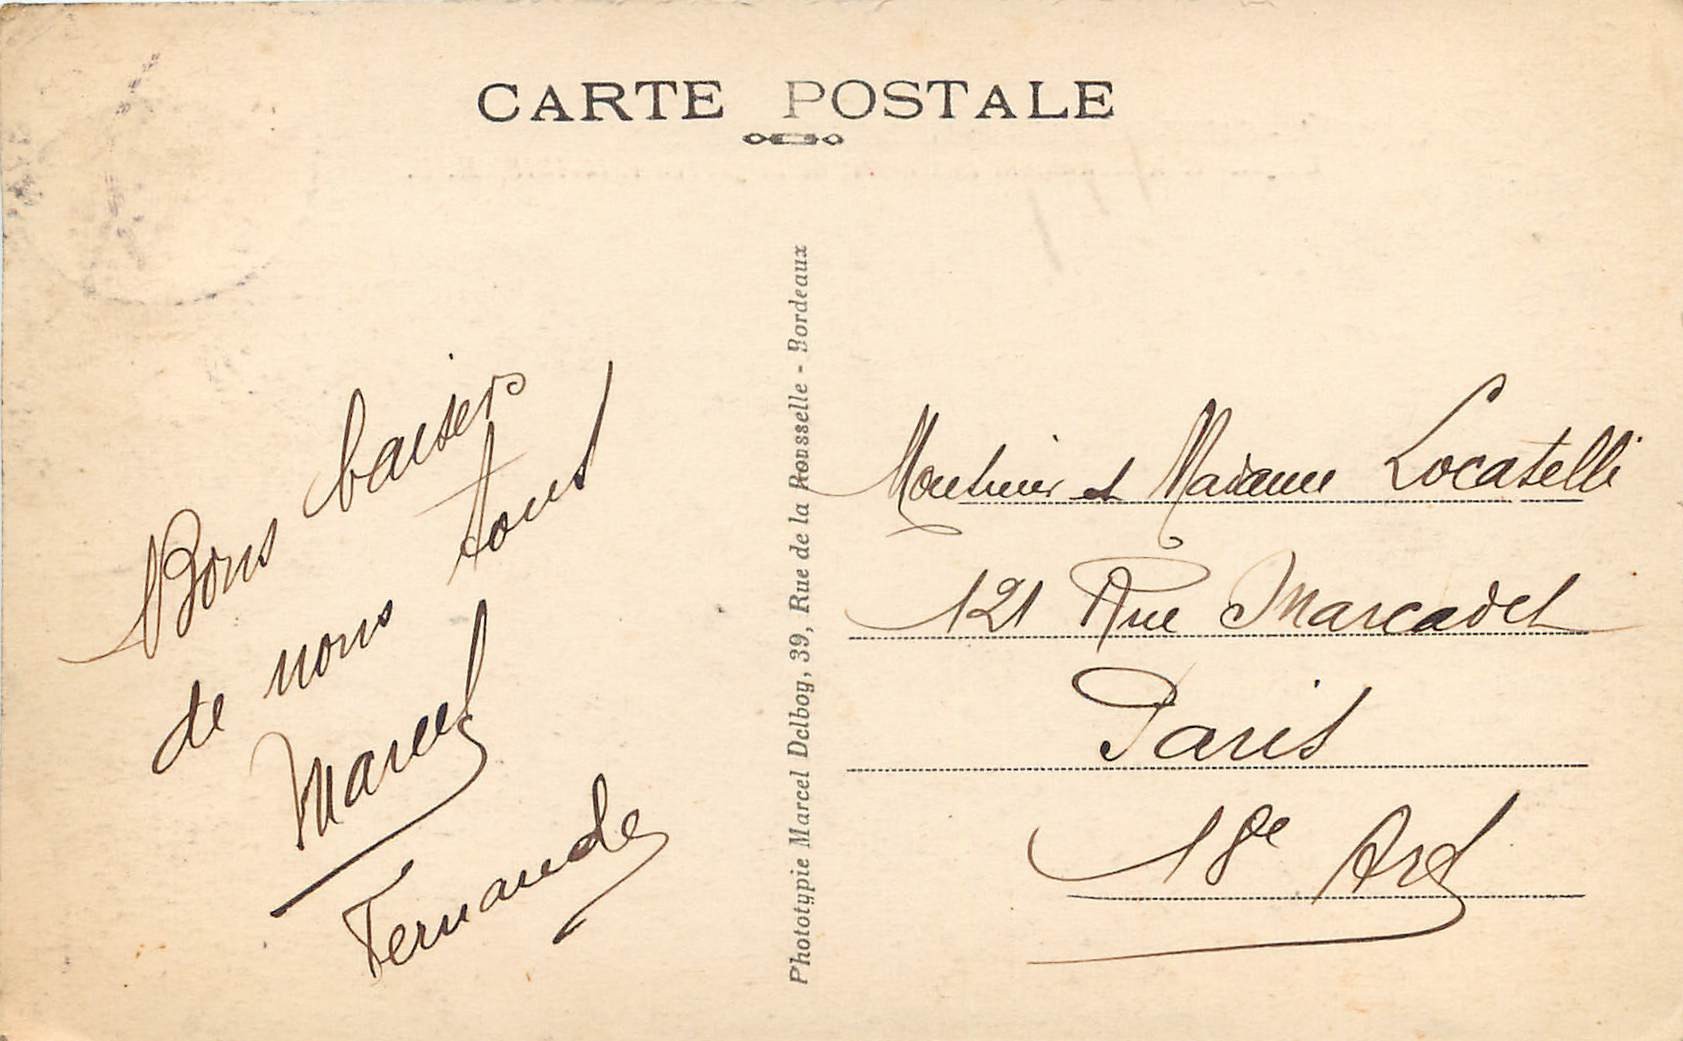 CARTE POSTALE
Bons baisers
de nous tous
Marcel
Fernande
Photototypie Marcel Delboy, 39, Rue de la Rousselle - Bordeaux
Monsieur et Madame Locatelli
121 Rue Marcadet
Paris
18e Ard